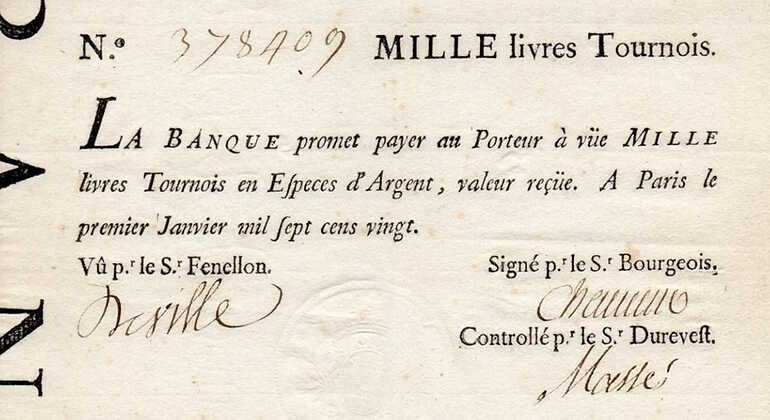 N.º 378409 MILLE livres Tournois.
LA BANQUE promet payer au Porteur à vüe MILLE
livres Tournois en Eſpeces d'Argent, valeur reçüe. A Paris le
premier Janvier mil ſept cens vingt.
Vû p.r le S.r Fenellon. Signé p.r le S.r Bourgeois.
Controllé p.r le S.r Dureveſt.